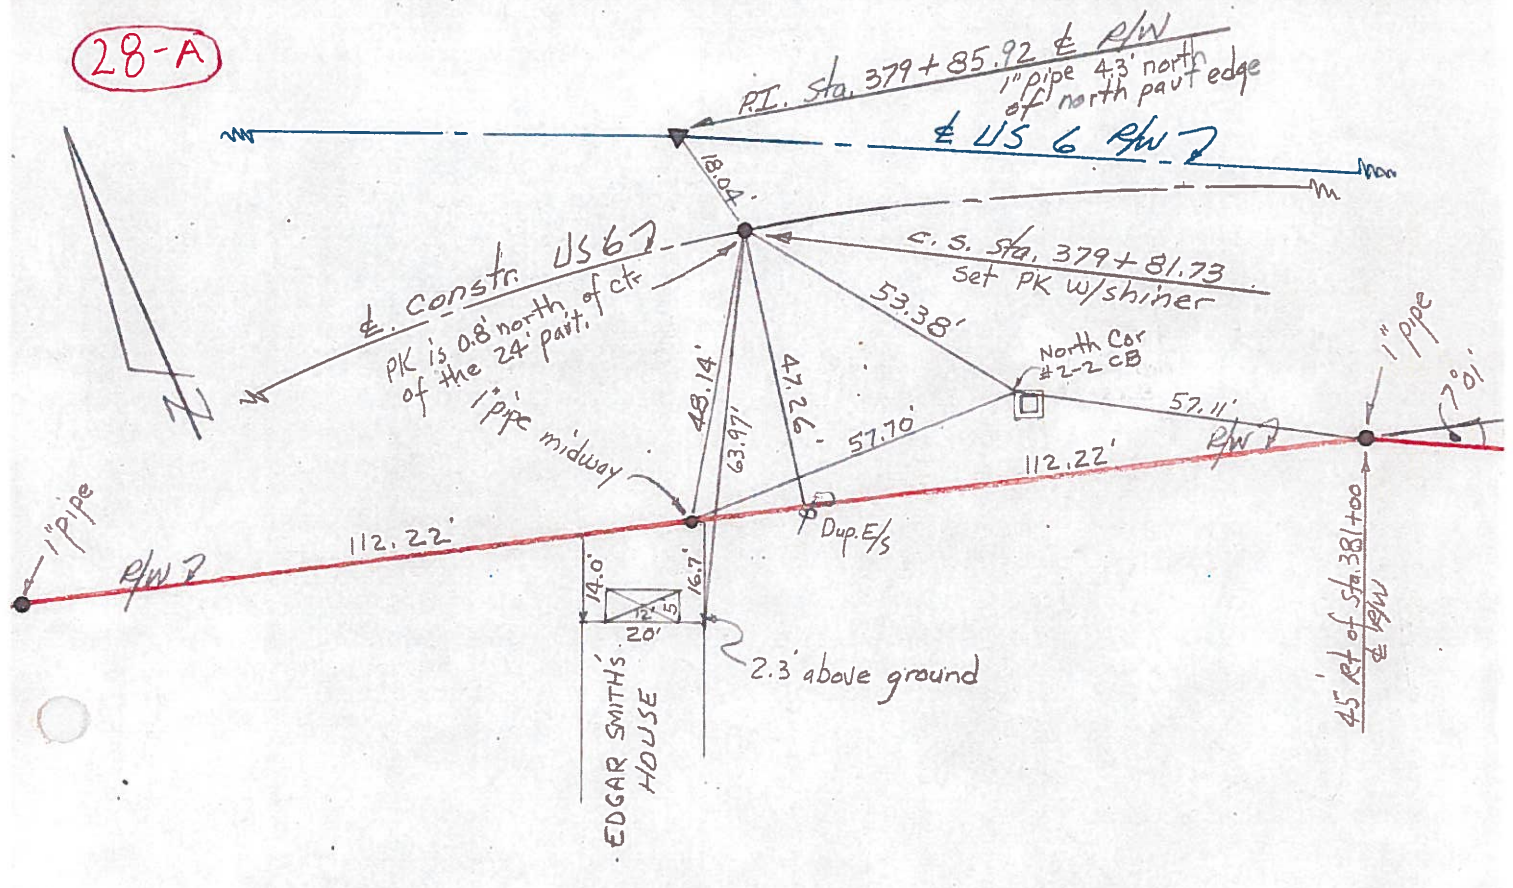 28-A
P.I. Sta. 379+85.92 ℄ R/W
1" pipe 4.3' north
of north pavt edge
℄ US 6 R/W
18.04'
℄ constr. US 6
c.s. Sta. 379+81.73
Set PK w/shiner
PK is 0.8' north of ctr
of the 24' pavt.
1" pipe midway
53.38'
North Cor
#2-2 CB
1" pipe
7°01'
48.14'
63.97'
47.26'
57.70'
57.11'
R/W
112.22'
Dup. E/s
1" pipe
R/W
112.22'
N
14.0'
16.7'
12'
5
20'
2.3' above ground
EDGAR SMITH'S
HOUSE
45' Rt of Sta. 381+00
℄ R/W